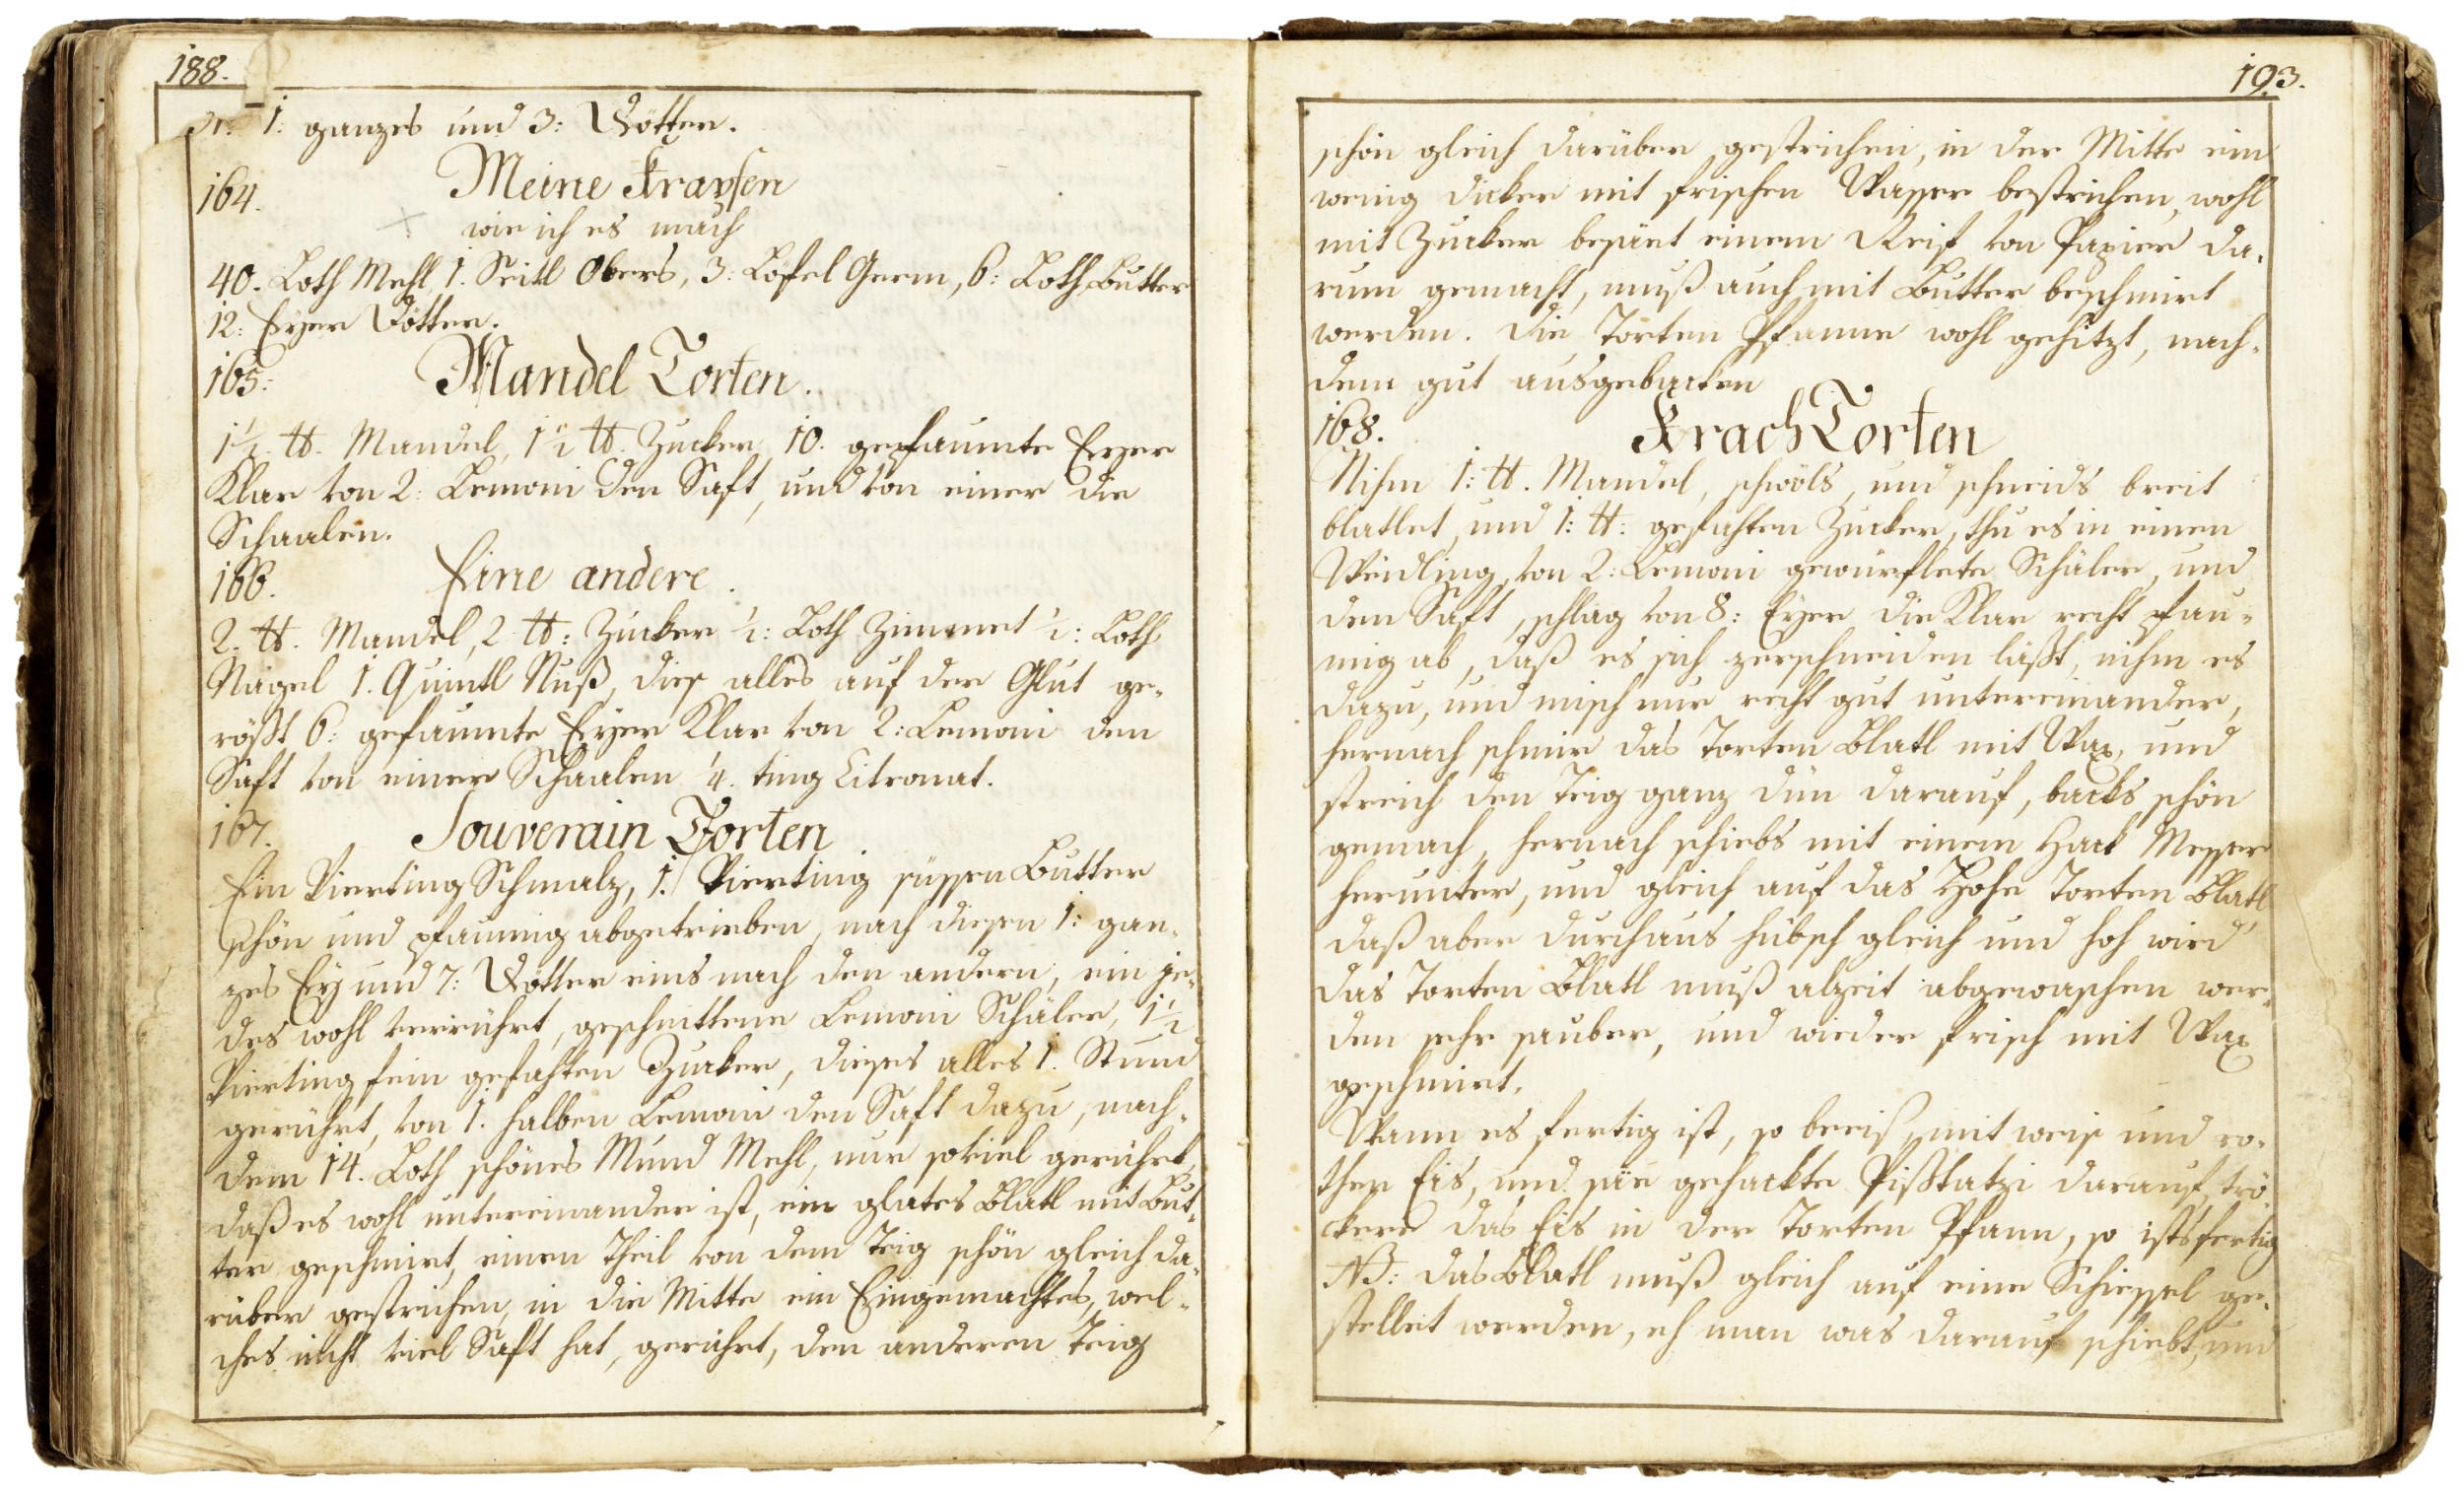 188.
1: ganzes und 3: Dötter.
164. Meine Krapfen
wie ich es mach
40. Loth Mehl, 1. Seitl Obers, 3: Löfel Germ, 6: Loth Butter
12: Eyer Dötter.
165: Mandel Torten.
1 1/2. ℔. Mandel, 1 1/2 ℔. Zucker, 10. gepfaumte Eyer
Klar von 2: Lemoni den Saft, und von einer die
Schaalen.
166. Eine andere.
2. ℔. Mandel, 2 ℔: Zucker 1/2: Loth Zimmet 1/2: Loth
Nägel 1. Quintl Nuß, dies alles auf der Glut ge„
rößt 6: gefaumte Eyer Klar von 2: Lemoni den
Saft von einer Schaalen 1/4. ting Citronat.
167. Souverain Torten
Ein Vierting Schmalz, 1. Vierting süssen Butter
schön und pfaumig abgetrieben, nach diesen 1: gan„
zes Ey und 7: Dötter eins nach den andern, ein je„
des wohl verrührt, geschnittene Lemoni Schäler, 1 1/2
Vierting fein gefähten Zucker, dieses alles 1. Stund
gerührt, von 1. halben Lemoni den Saft dazu, nach„
dem 14. Loth schönes Mund Mehl, nur soviel gerührt,
daß es wohl untereinander ist, ein glates Blatl mit But„
ter geschmirt, einen Theil von dem Teig schön gleich da„
rüber gestrichen, in die Mitte ein Eingemachtes, wel„
ches nicht viel Saft hat, gerührt, den anderen Teig
193.
schön gleich darüber gestrichen, in der Mitte ein
wenig dicker mit frischen Wasser bestrichen, wohl
mit Zucker besäet einem Reif von Papier da„
rum gemacht, muß auch mit Butter beschmirt
werden. die Torten Pfanne wohl gehitzt, nach„
dem gut ausgebacken
168. Krach Torten
Nihm 1: ℔. Mandel, schwöls, und schneids breit
blatlet, und 1: ℔: gefähten Zucker, thu es in einen
Weidling, von 2: Lemoni gewürflete Schäler, und
den Saft, schlag von 8: Eyer die Klar recht pfau„
mig ab, daß es sich zerschneiden läßt, nihm es
dazu, und misch nur recht gut untereinander,
hernach schmir das Torten Blatl mit Wax, und
streich den Teig ganz dün darauf, backs schön
gemach, hernach schiebs mit einem Hack Messer
herunter, und gleich auf das Hohe Torten Blatl
daß aber durchaus hübsch gleich und hoh wird,
das Torten Blatl muß alzeit abgewaschen wer„
den sehr sauber, und wieder frisch mit Wax
geschmirt.
Wann es fertig ist, so beeiß mit weis und ro„
then Eis, und säe gehackte Pißtatzi darauf, trö„
ckere das Eis in der Torten Pfann, so ists fertig
NB: das Blatl muß gleich auf eine Schiessel ge„
stelleit werden, eh man was darauf schiebt, und